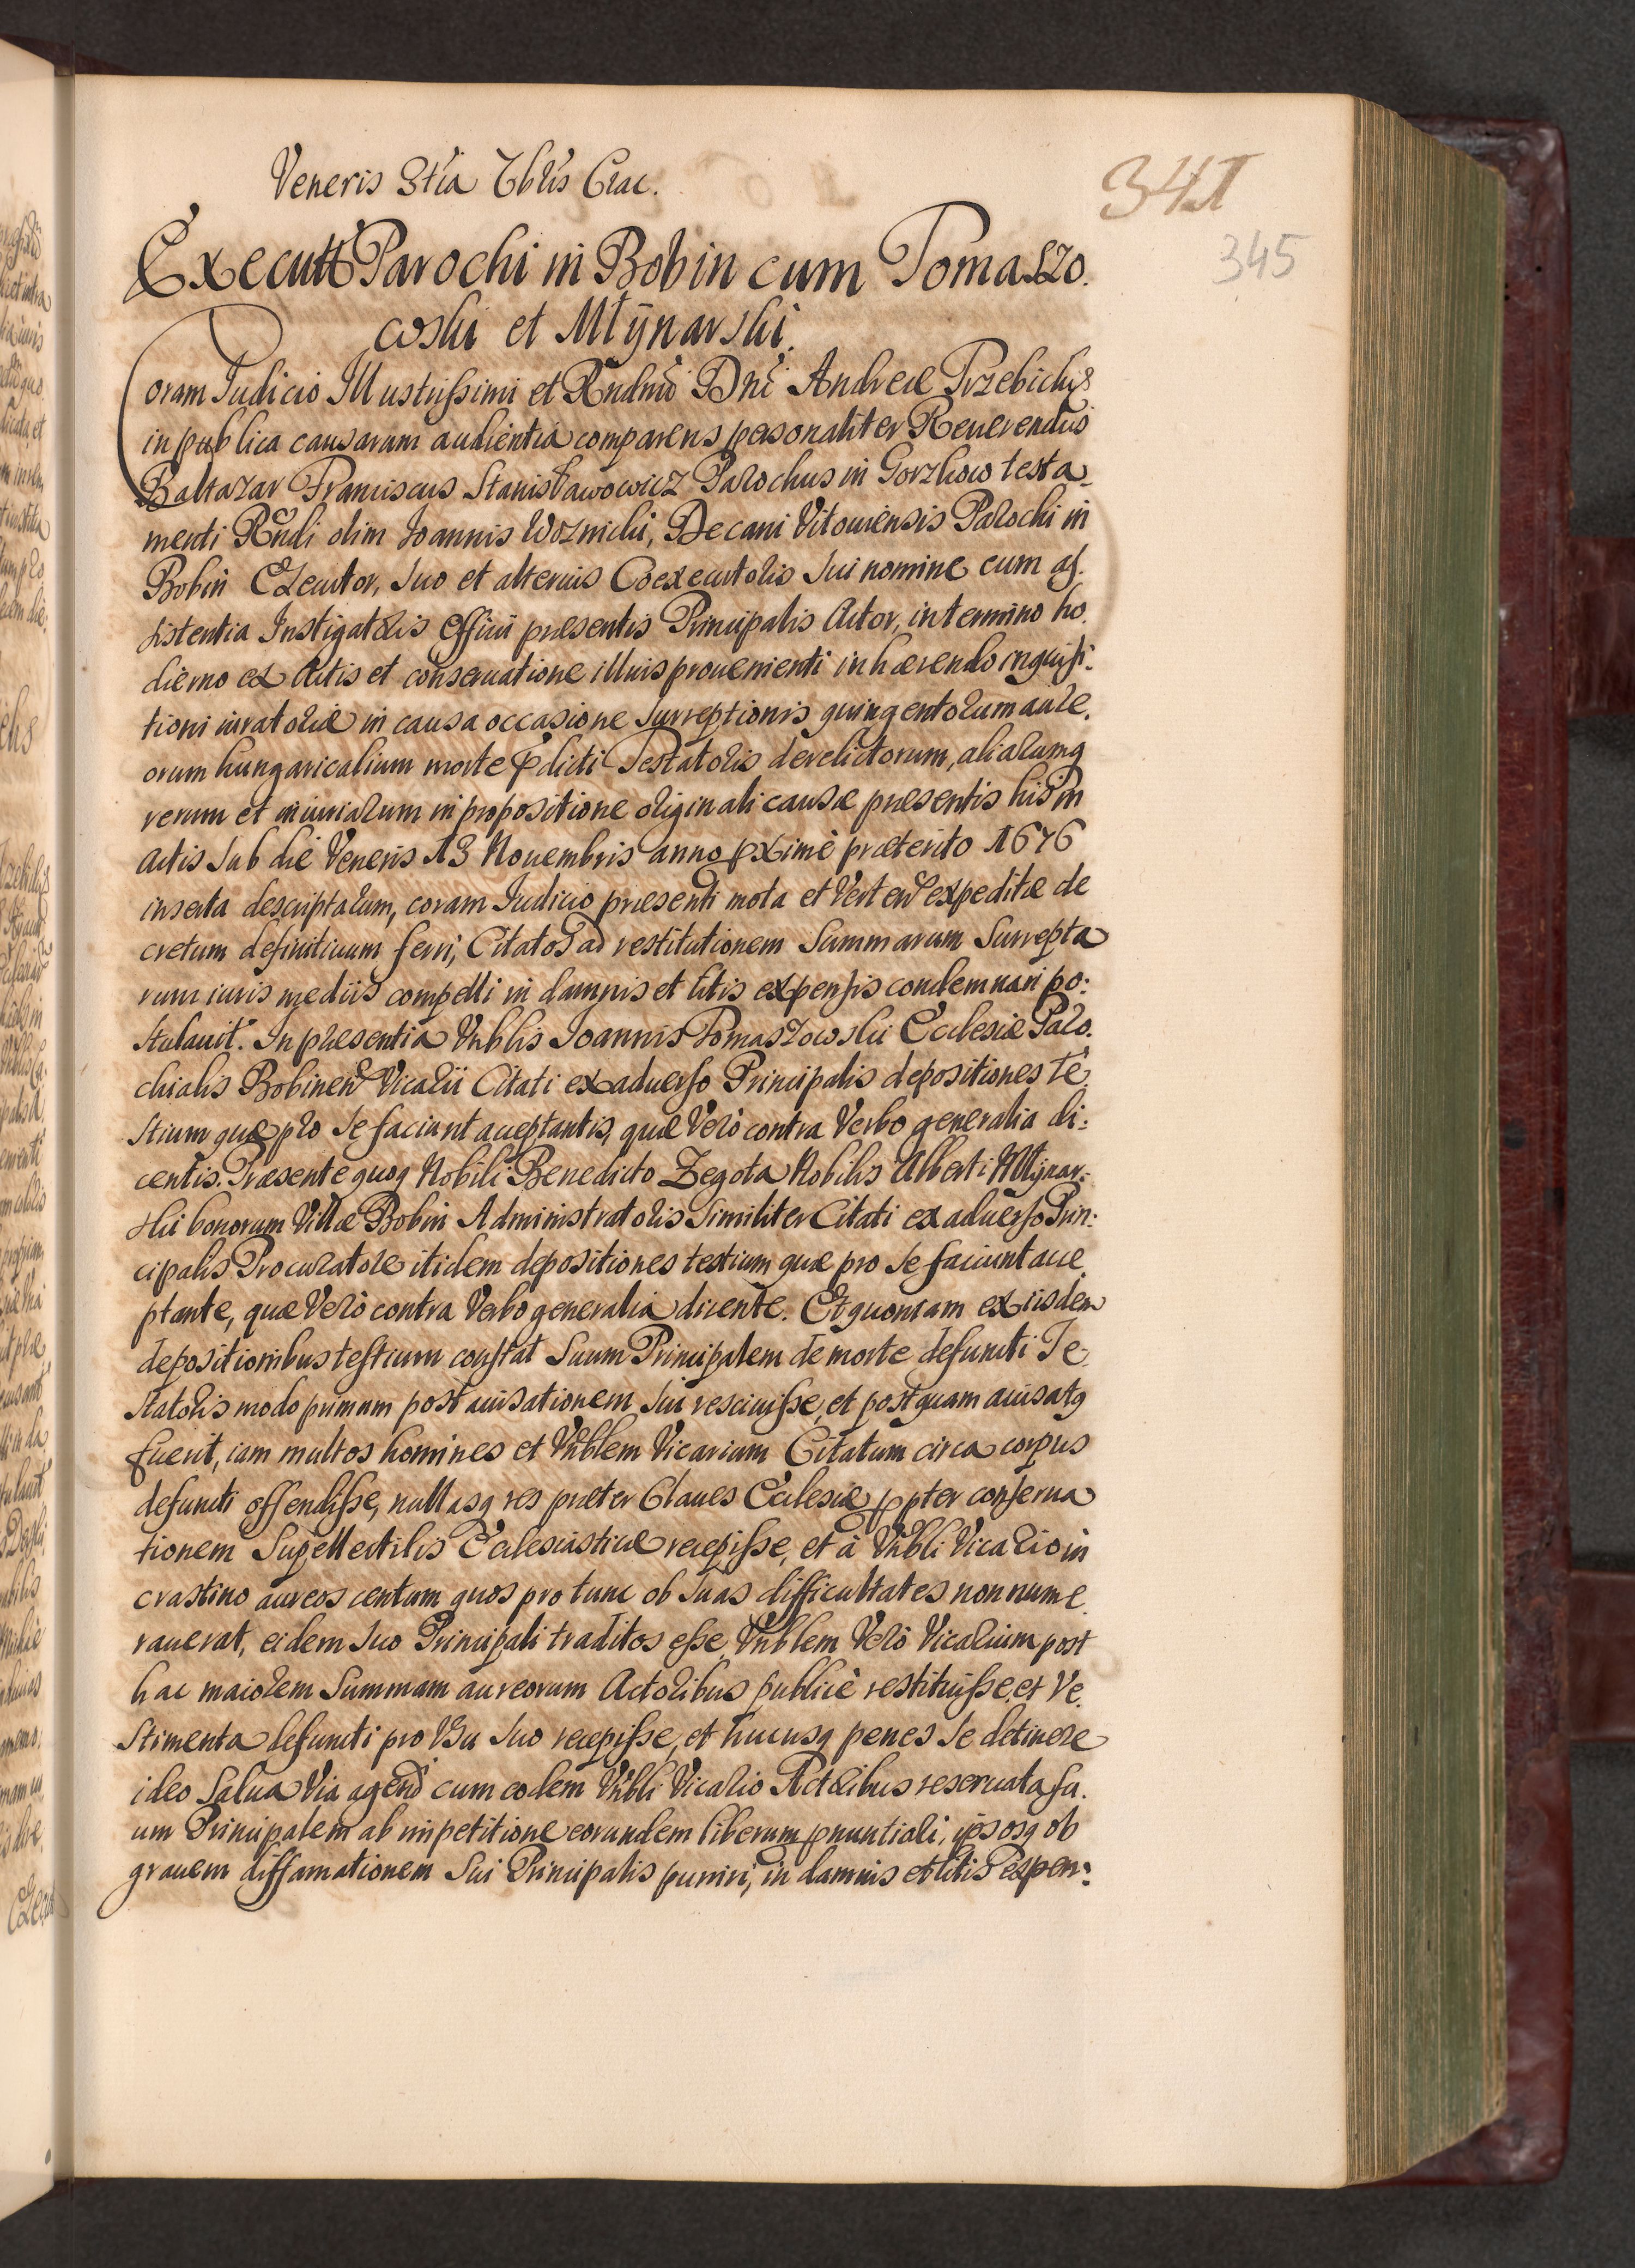 Veneris 3tia 7bris Crac.
341
345
Executt Parochi in Bobin cum Tomaszo.
wski et Młÿnarski.
Coram Judicio Illustrissimi et Rndmi Dni Andreæ Trzebicky
in publica causarum audientia comparens personaliter Reuerendus
Baltazar Franciscus Stanisławowicz Parochus in Gorzkow testa-
menti Rndi olim Joannis Woznicki, Decani Vitouiensis Parochi in
Bobin Executor, suo et alterius Coexecutoris sui nomine cum as.
sistentia Instigatoris Officii præsentis Principalis Actor, in termino ho.
dierno ex Actis et conseruatione illius prouenienti inhærendo inquisi.
tioni iuratoriæ in causa occasione surreptionis quingentorum aure.
orum hungaricalium morte pdicti Testatoris derelictorum, aliarumq
rerum et iniuriarum in propositione originali causæ præsentis his in
Actis sub die Veneris 13 Nouembris anno pximè præterito 1676
inserta descriptarum, coram Iudicio præsenti mota et verten expeditæ de
cretum definitiuum ferri, Citatos ad restitutionem summarum surrepta
rum iuris mediis compelli in damnis et litis expensis condemnari po:
stulauit. In præsentia Vnblis Joannis Tomaszowski Ecclesiæ Paro.
chialis Bobinen Vicarii Citati ex aduerso Principalis depositiones te
stium quæ pro se faciunt acceptantis, quæ verò contra verbo generalia di:
centis. Præsente quoq Nobili Benedicto Zegota Nobilis Alberti Młynar:
ski bonorum Villæ Bobin Administratoris similiter Citati ex aduerso Prin:
cipalis Procuratore itidem depositiones testium quæ pro se faciunt acce.
ptante, quæ verò contra verbo generalia dicente. Et quoniam ex iisdem
depositionibus testium constat suum Principalem de morte defuncti Te.
statoris modo primum post auisationem sui resciuisse, et postquam auisatq
fuerit, iam multos homines et Vnblem Vicarium Citatum circa corpus
defuncti offendisse, nullasq res præter Claues Ecclesiæ ppter conserua
tionem supellectilis Ecclesiasticæ recepisse, et à Vnbli Vicario in
crastino aureos centum quos pro tunc ob suas difficultates non nume.
rauerat, eidem suo Principali traditos esse, Vnblem verò Vicarium post
hac maiorem summam aureorum Actoribus publicè restituisse, et ve.
stimenta defuncti pro vsu suo recepisse, et hucusq penes se detinere
ideo salua via agend cum eodem Vnbli Vicario Actoribus reseruata su.
um Principalem ab impetitione eorundem liberum pnuntiari, ipsosq ob
grauem diffamationem sui Principalis puniri, in damnis et litis expen: